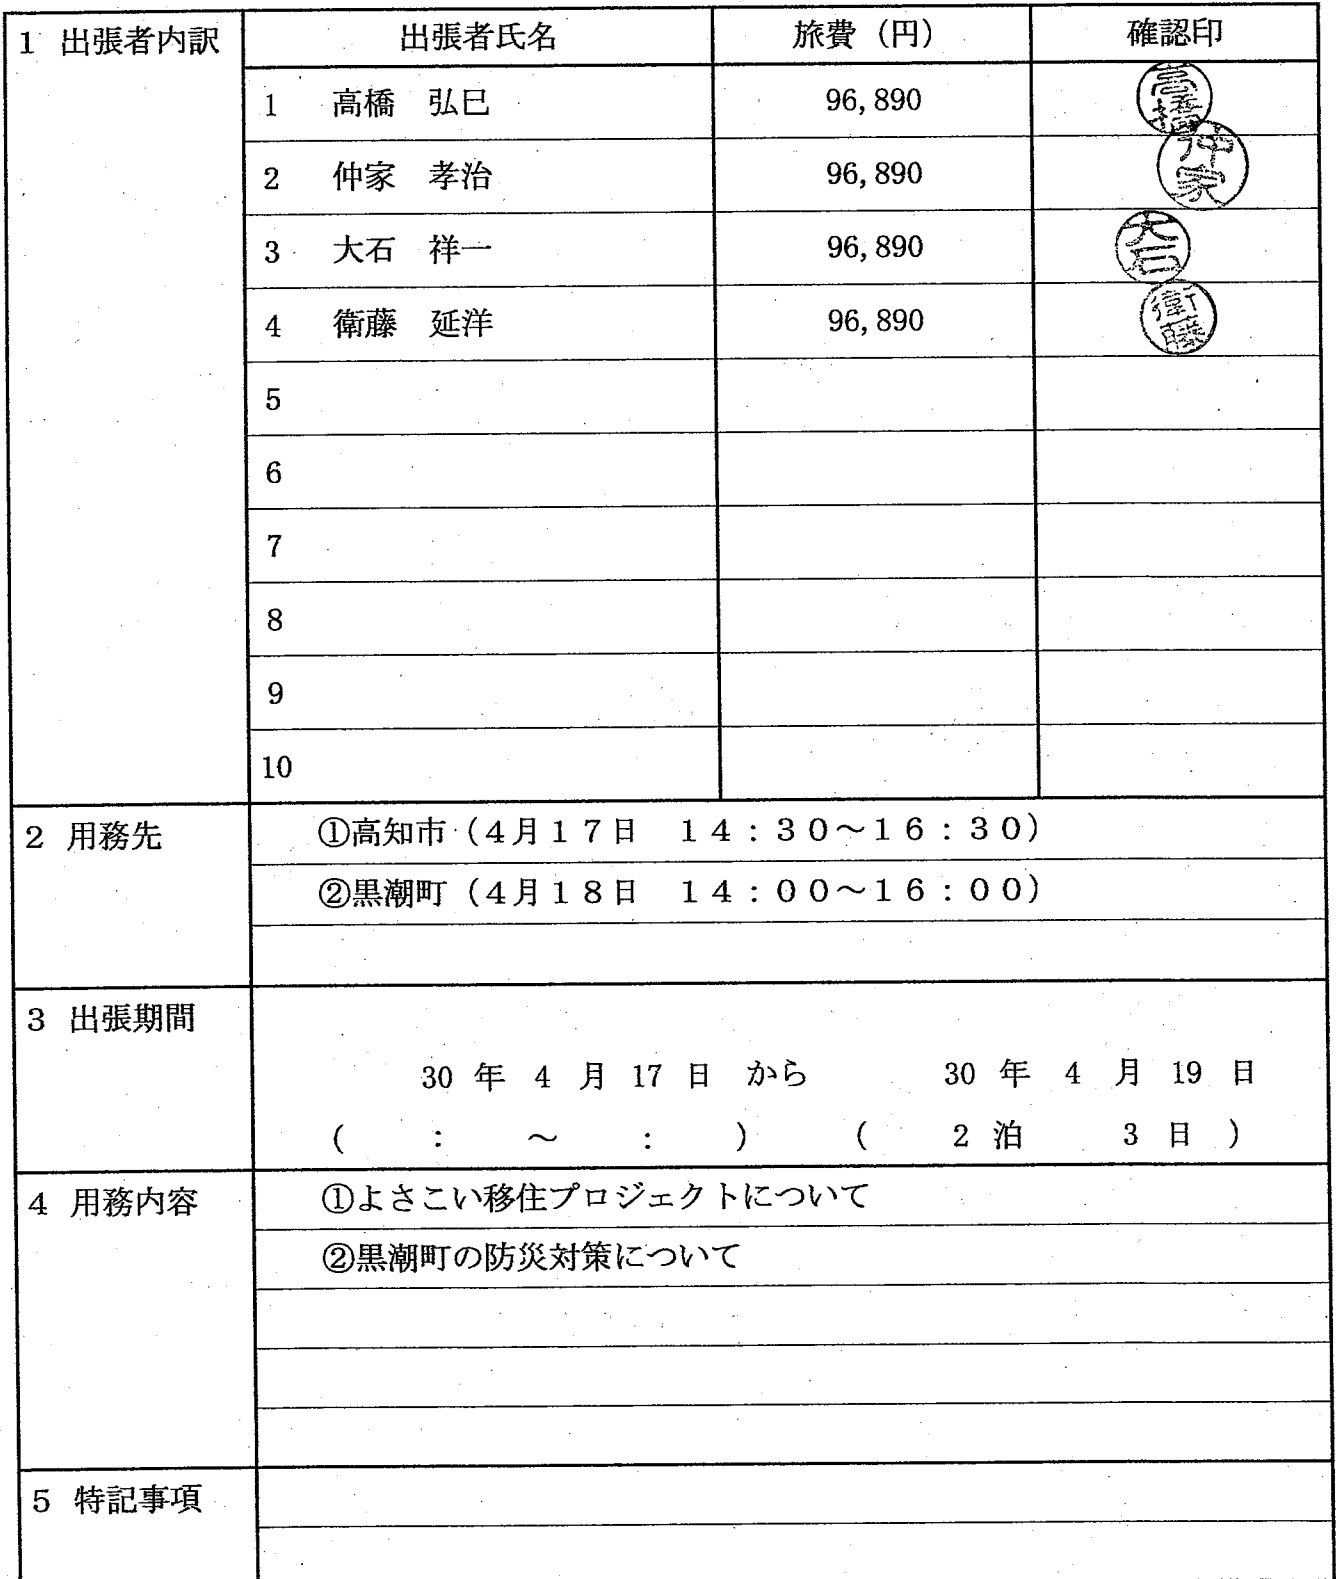 1 出張者内訳 出張者氏名 旅費（円） 確認印
1 高橋 弘巳 96,890 高橋
2 仲家 孝治 96,890 仲家
3 大石 祥一 96,890 大石
4 衛藤 延洋 96,890 衛藤
5
6
7
8
9
10
2 用務先 ①高知市（４月１７日　１４：３０～１６：３０）
②黒潮町（４月１８日　１４：００～１６：００）
3 出張期間
30 年 4 月 17 日 から 30 年 4 月 19 日
（ ： ～ ： ） （ 2 泊 3 日 ）
4 用務内容 ①よさこい移住プロジェクトについて
②黒潮町の防災対策について
5 特記事項